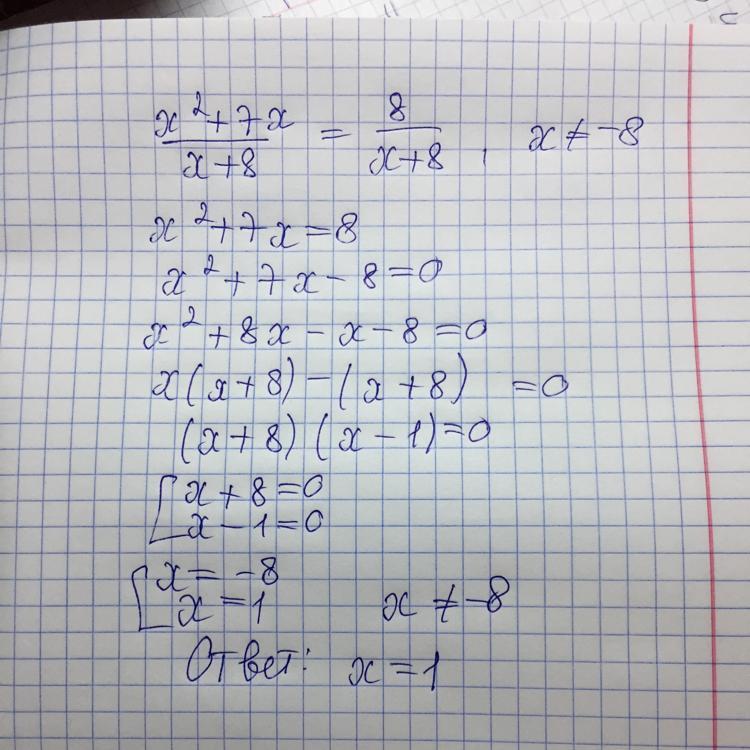 (x²+7x)/(x+8) = 8/(x+8), x≠-8
x²+7x=8
x²+7x-8=0
x²+8x-x-8=0
x(x+8)-(x+8) =0
(x+8)(x-1)=0
[x+8=0
x-1=0
[x=-8
x=1 x≠-8
Ответ: x=1